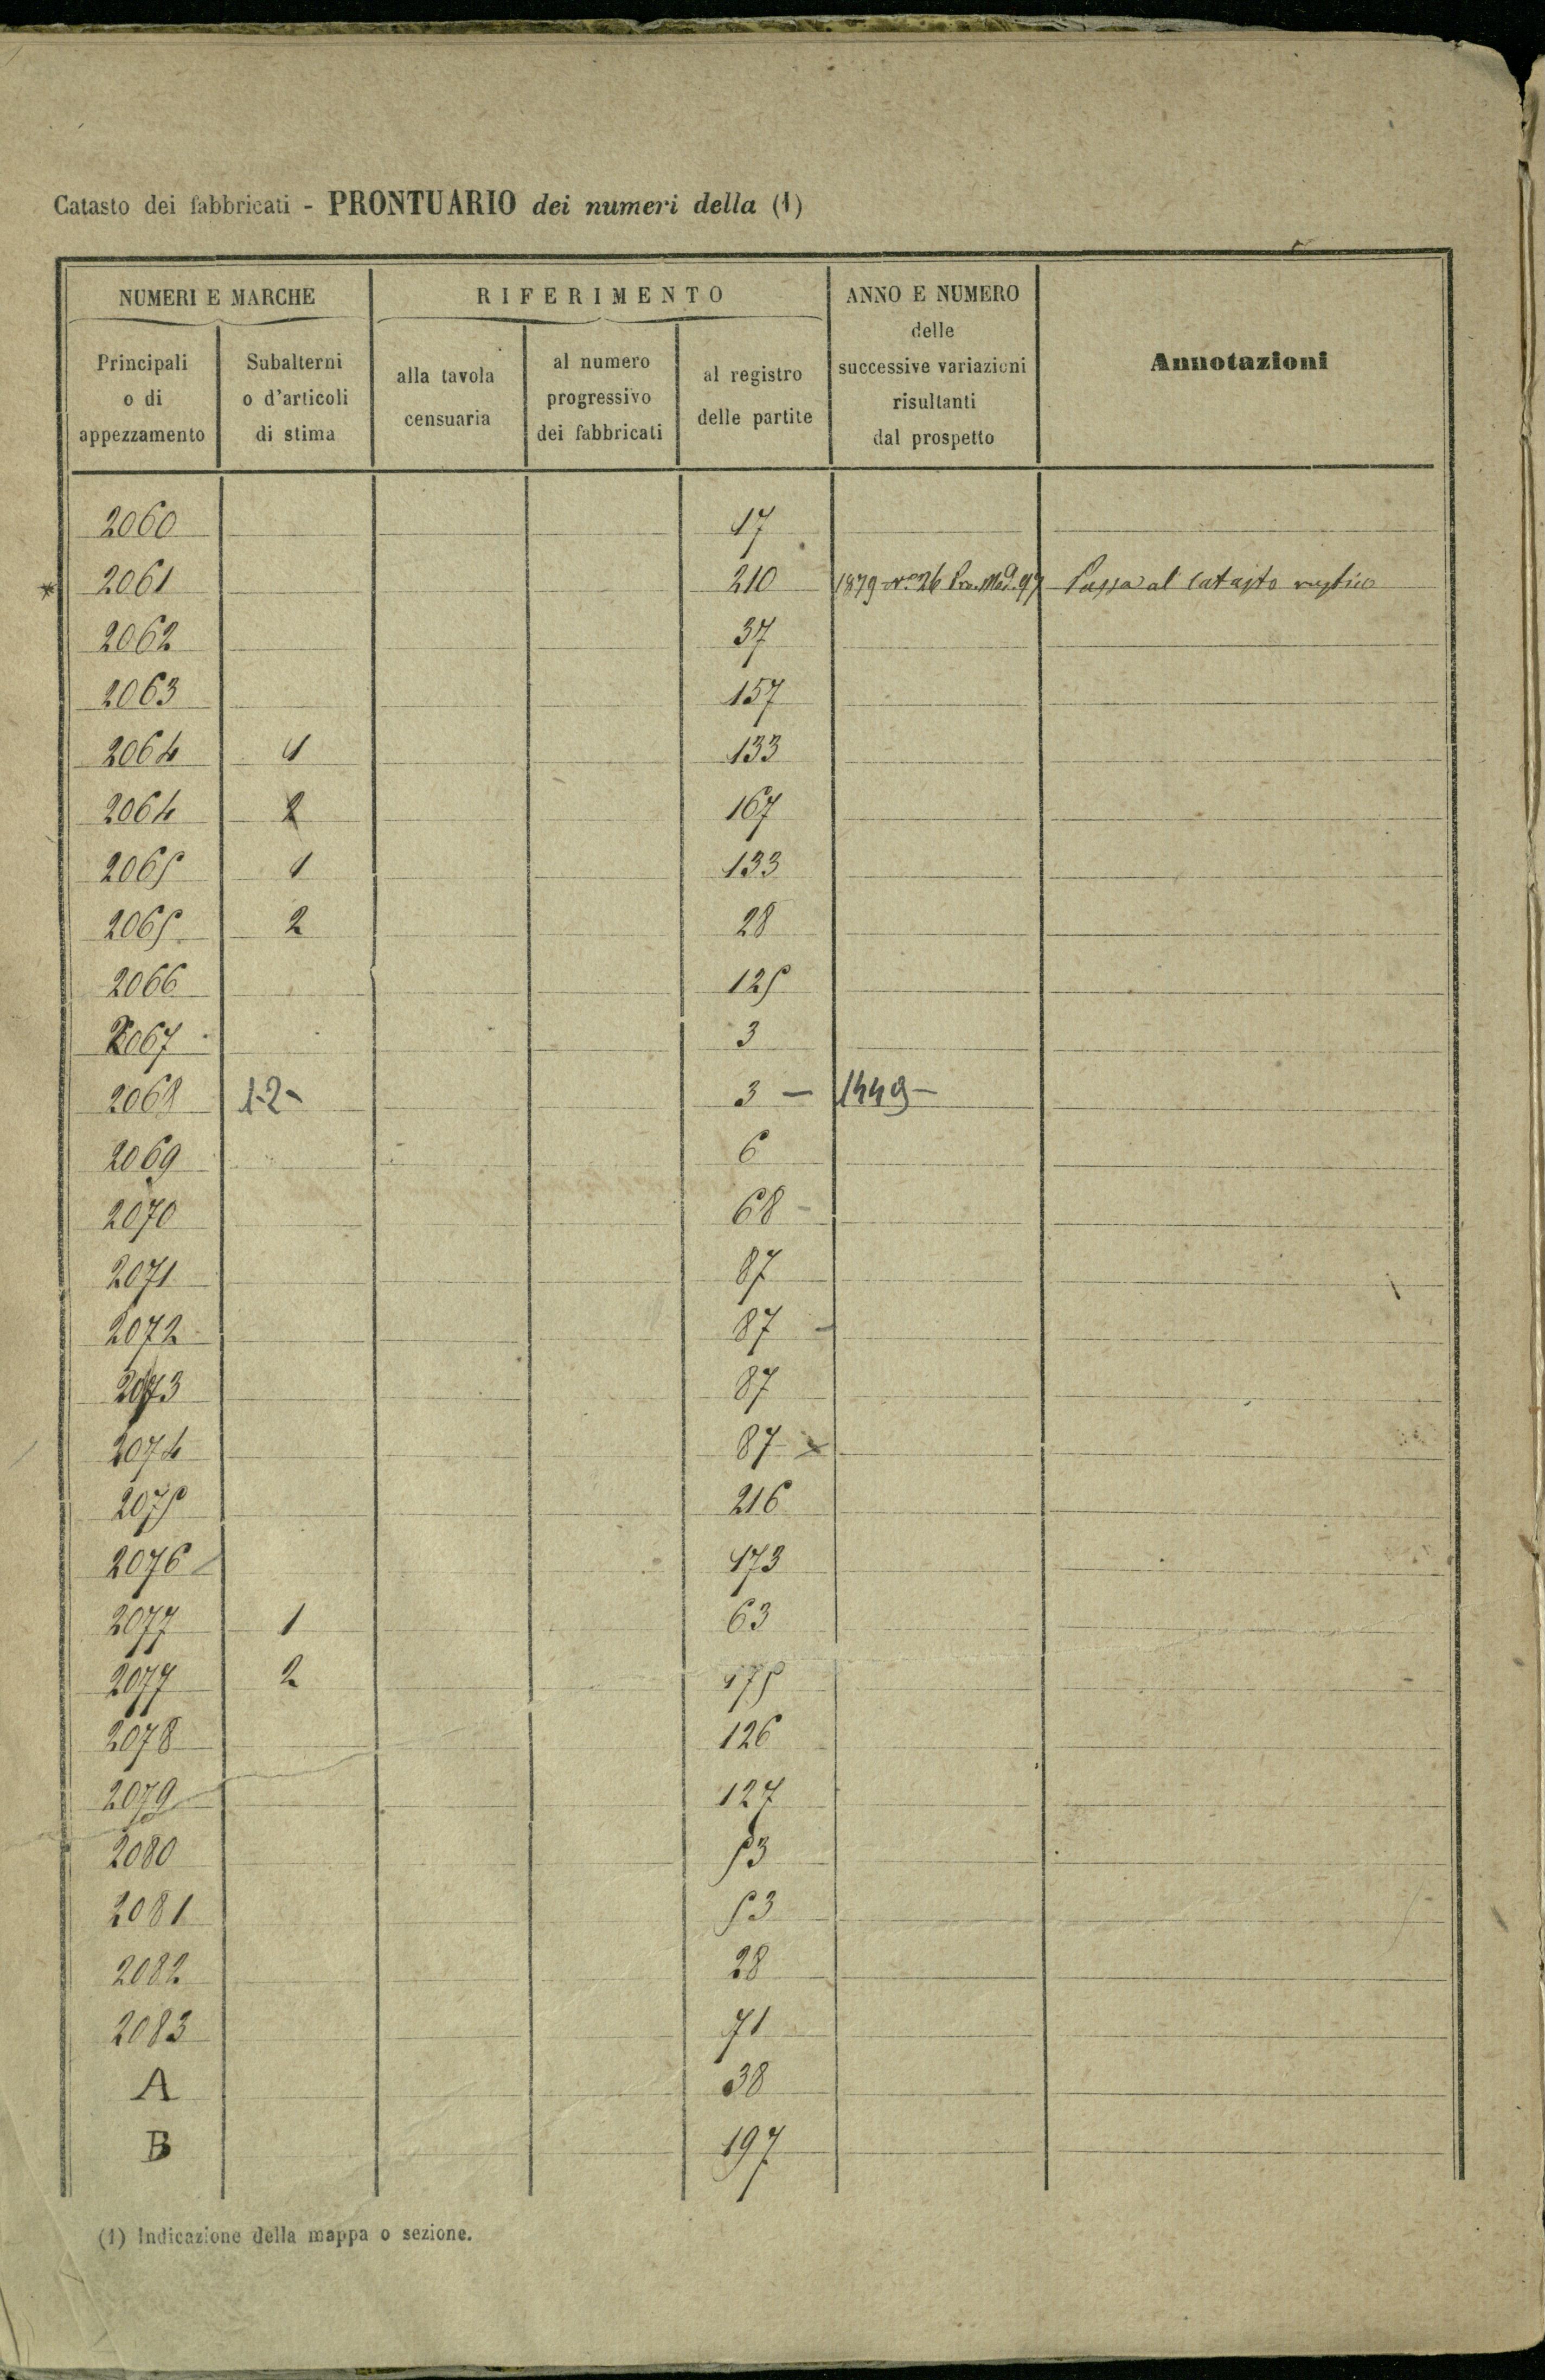 Catasto dei fabbricati - PRONTUARIO dei numeri della (1)
NUMERI E MARCHE
RIFERIMENTO
ANNO E NUMERO
delle
successive variazioni
risultanti
dal prospetto
Annotazioni
Principali
o di
appezzamento
Subalterni
o d'articoli
di stima
alla tavola
censuaria
al numero
progressivo
dei fabbricati
al registro
delle partite
2060 17
2061 210 1879 N.° 26 Mod. 97 Passa al Catasto rustico
2062 37
2063 157
2064 1 133
2064 2 167
2065 1 133
2065 2 28
2066 125
2067 3
2068 1-2- 3 - 1449-
2069 6
2070 68 -
2071 87
2072 87 -
2073 87
2074 87 x
2075 216
2076 173
2077 1 63
2077 2 175
2078 126
2079 127
2080 53
2081 53
2082 28
2083 71
A 38
B 197
(1) Indicazione della mappa o sezione.